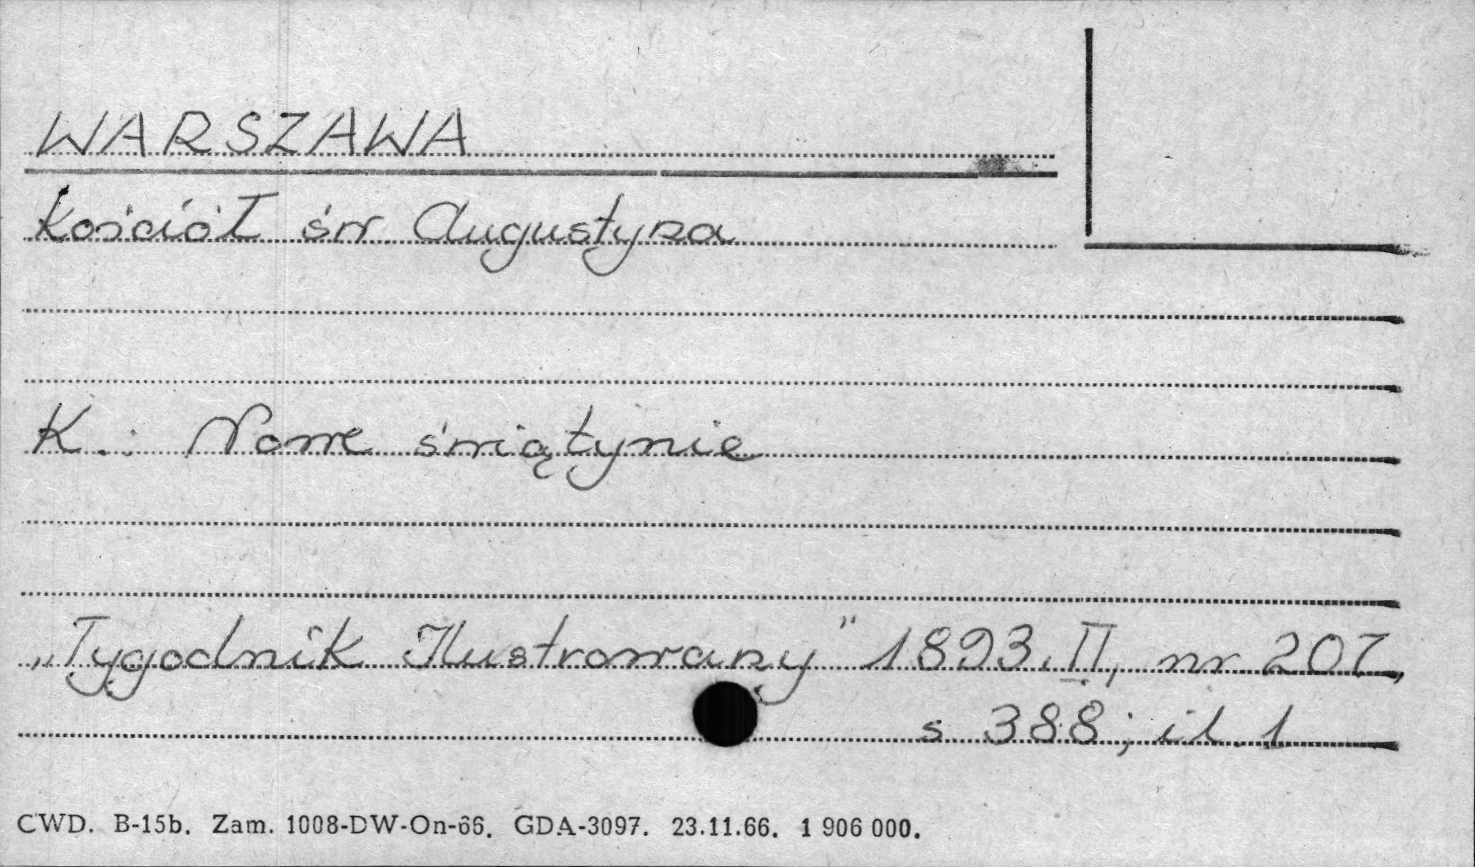 WARSZAWA
Kościół św. Augustyna
K.: Nowe świątynie
„Tygodnik Ilustrowany" 1893.II, nr 207,
s 388; il. 1
CWD. B-15b. Zam. 1008-DW-On-66. GDA-3097. 23.11.66. 1 906 000.